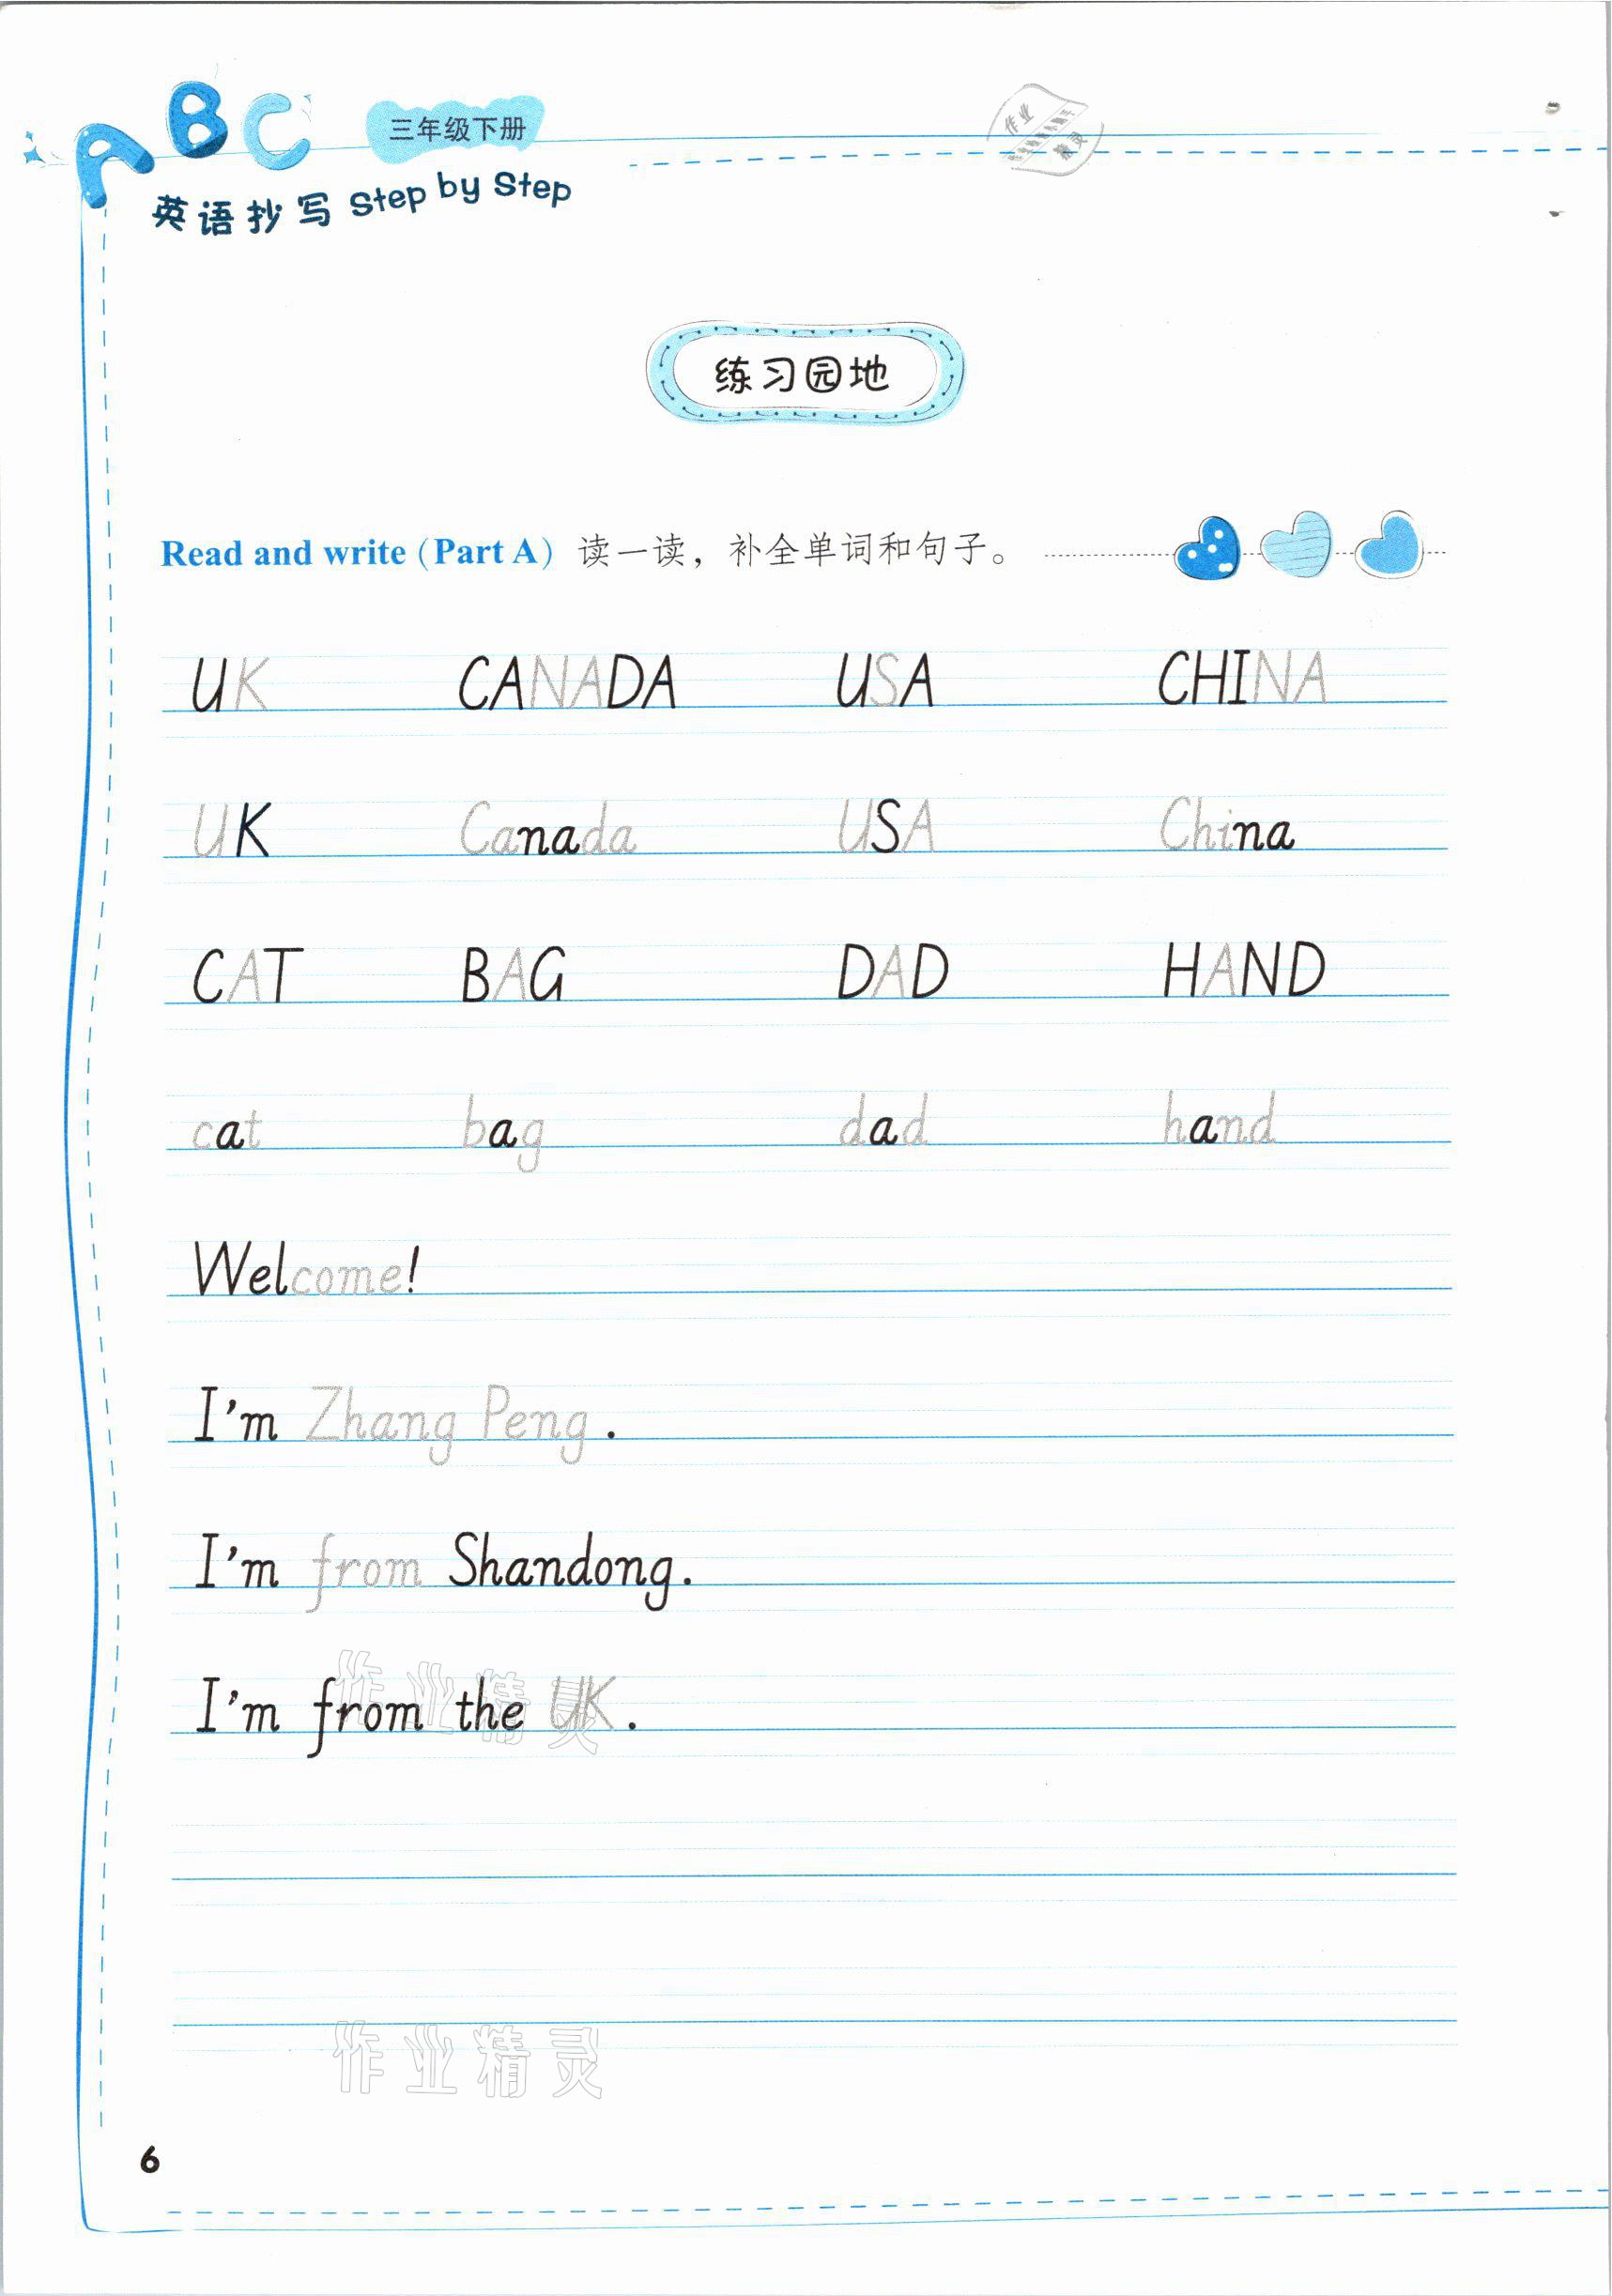 ABC
三年级下册
作业
精灵
英语抄写 Step by Step
练习园地
Read and write (Part A) 读一读，补全单词和句子。
UK CANADA USA CHINA
UK Canada USA China
CAT BAG DAD HAND
cat bag dad hand
Welcome!
I'm Zhang Peng.
I'm from Shandong.
I'm from the UK.
作业精灵
作业精灵
6